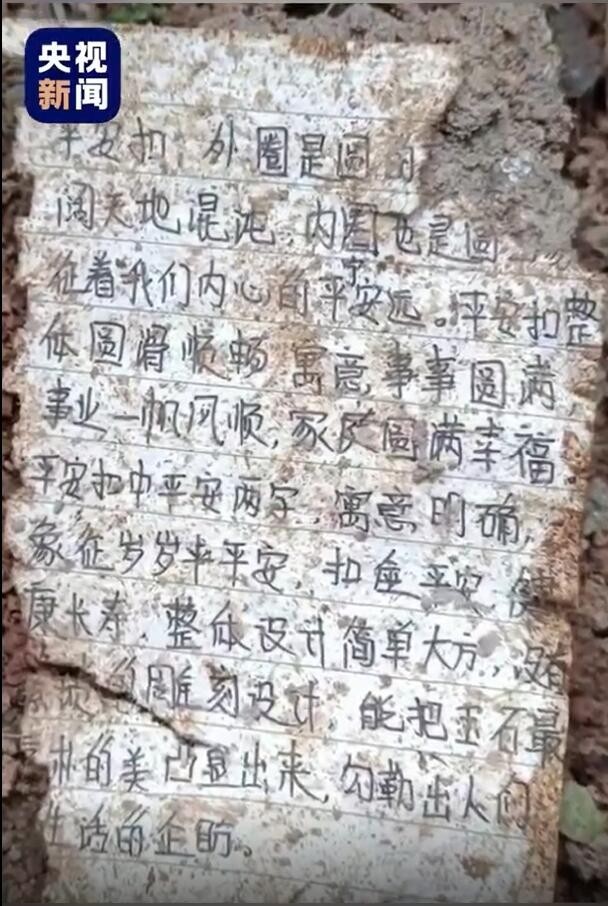 央视
新闻
平安扣 外圈是圆
阔天地混沌,内圈也是圆
征着我们内心的平宁安远。平安扣整
体圆滑顺畅 寓意,事事圆满,
事业一帆风顺,家庭圆满幸福。
平安扣中平安两字,寓意明确,
象征岁岁平平安,扣座平安,健
康长寿,整体设计简单大方,没有
的雕刻设计,能把玉石最
朴的美凸显出来,勾勒出人们
生活的企盼。